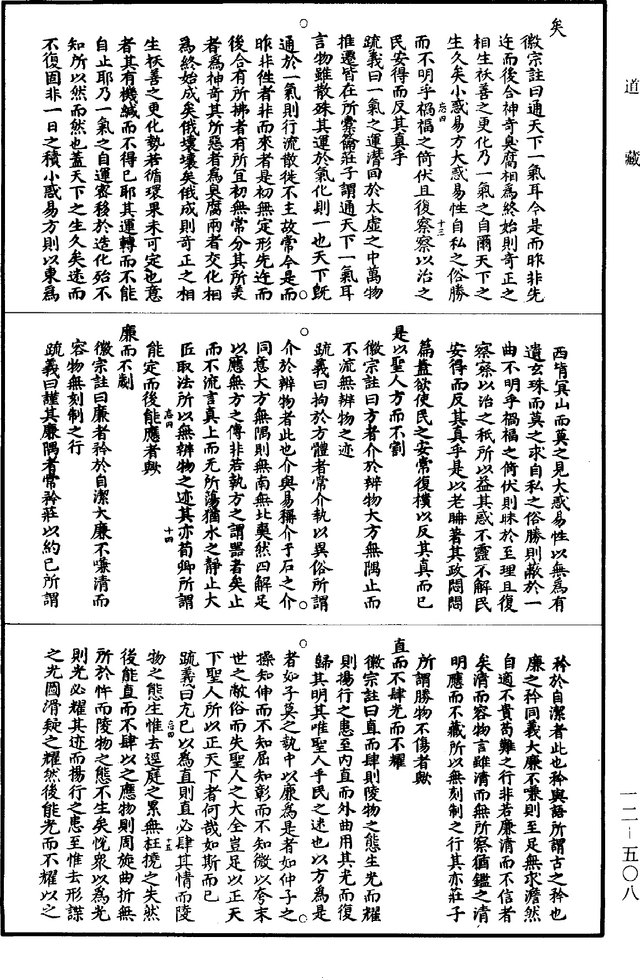 道藏
矣
徽宗註曰通天下一氣耳今是而昨非先
迕而後合神奇臭腐相為終始則奇正之
相生祅善之更化乃一氣之自爾天下之
生久矣小惑易方大惑易性自私之俗勝
而不明乎禍福之倚伏且復察察以治之
民安得而反其真乎
疏義曰一氣之運潛回於太虛之中萬物
推遷皆在所橐籥莊子謂通天下一氣耳
言物雖散殊其運於氣化則一也天下既
通於一氣則行流散徙不主故常今是而
昨非徃者非而來者是初無定形先迕而
後合有所拂者有所宜初無常分其所美
者為神奇其所惡者為臭腐兩者交化相
為終始成矣俄壞壞矣俄成則奇正之相
生祅善之更化勢若循環果未可定也意
者其有機緘而不得已耶其運轉而不能
自止耶乃一氣之自運密移於造化殆不
知所以然而然也蓋天下之生久矣迷而
不復固非一日之積小惑易方則以東為
西背冥山而莫之見大惑易性以無為有
遺玄珠而莫之求自私之俗勝則蔽於一
曲不明乎禍福之倚伏則昧於至理且復
察察以治之秖所以益其惑不靈不解民
安得而反其真乎是以老聃著其政悶悶
篇蓋欲使民之安常復樸以反其真而已
是以聖人方而不割
徽宗註曰方者介於辨物大方無隅止而
不流無辨物之迹
疏義曰拘於方體者常介執以異俗所謂
介於辨物者此也介與易稱介于石之介
同意大方無隅則無南無北奭然四解足
以應無方之傳非若執方之謂器者矣止
而不流言真上而无所蕩猶水之靜止大
匠取法所以無辨物之迹其亦荀卿所謂
能定而後能應者歟
廉而不劌
徽宗註曰廉者矜於自潔大廉不嗛清而
容物無刻制之行
疏義曰謹其廉隅者常矜莊以約已所謂
矜於自潔者此也矜與語所謂古之矜也
廉之矜同義大廉不嗛則至足無求澹然
自適不貴苟難之行非若廉清而不信者
矣清而容物言雖清而無所察猶鑑之清
明應而不藏所以無刻制之行其亦莊子
所謂勝物不傷者歟
直而不肆光而不耀
徽宗註曰直而肆則陵物之態生光而耀
則揚行之患至內直而外曲用其光而復
歸其明其唯聖人乎民之迷也以方為是
者如子莫之執中以廉為是者如仲子之
操知伸而不知屈知彰而不知微以夸末
世之敝俗而失聖人之大全豈足以正天
下聖人所以正天下者何哉如斯而已
疏義曰亢已以為直則直必肆其情而陵
物之態生惟去逕庭之累無枉撓之失然
後能直而不肆以之應物則周旋曲折無
所於忤而陵物之態不生矣恱衆以為光
則光必耀其迹而揚行之患至惟去形諜
之光圖滑疑之耀然後能光而不耀以之
一二－五〇八